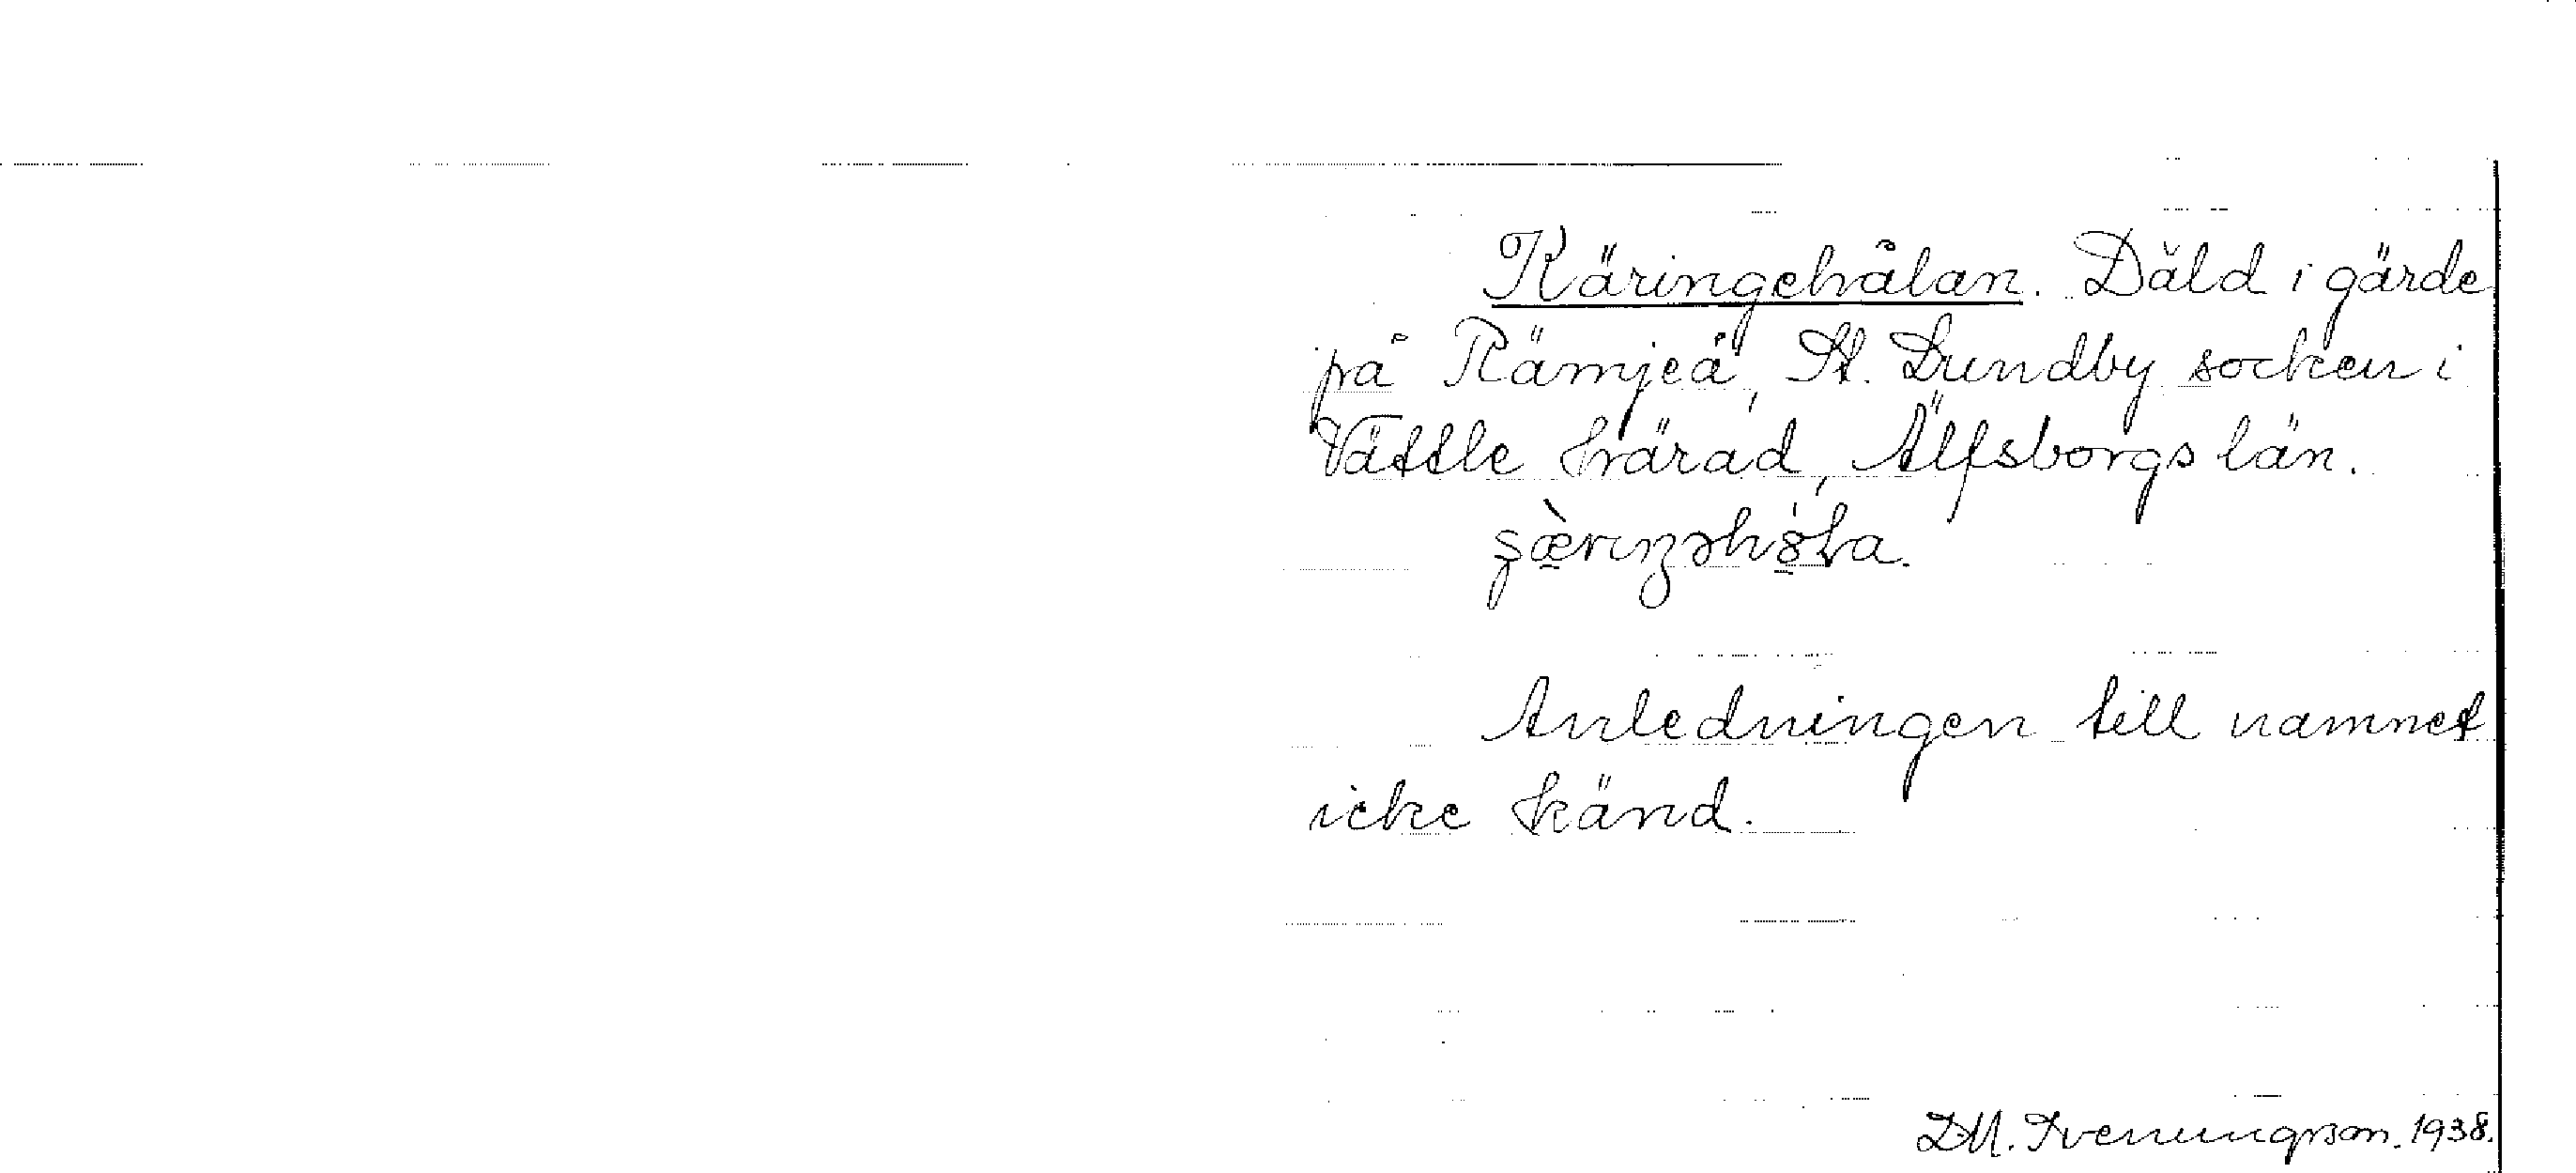 Käringehålan. Däld i gärde
på Rämjeå, St. Lundby socken i
Vättle härad, Älfsborgs län.
Anledningen till namnet
icke känd.
D.M. Svenungsson. 1938.